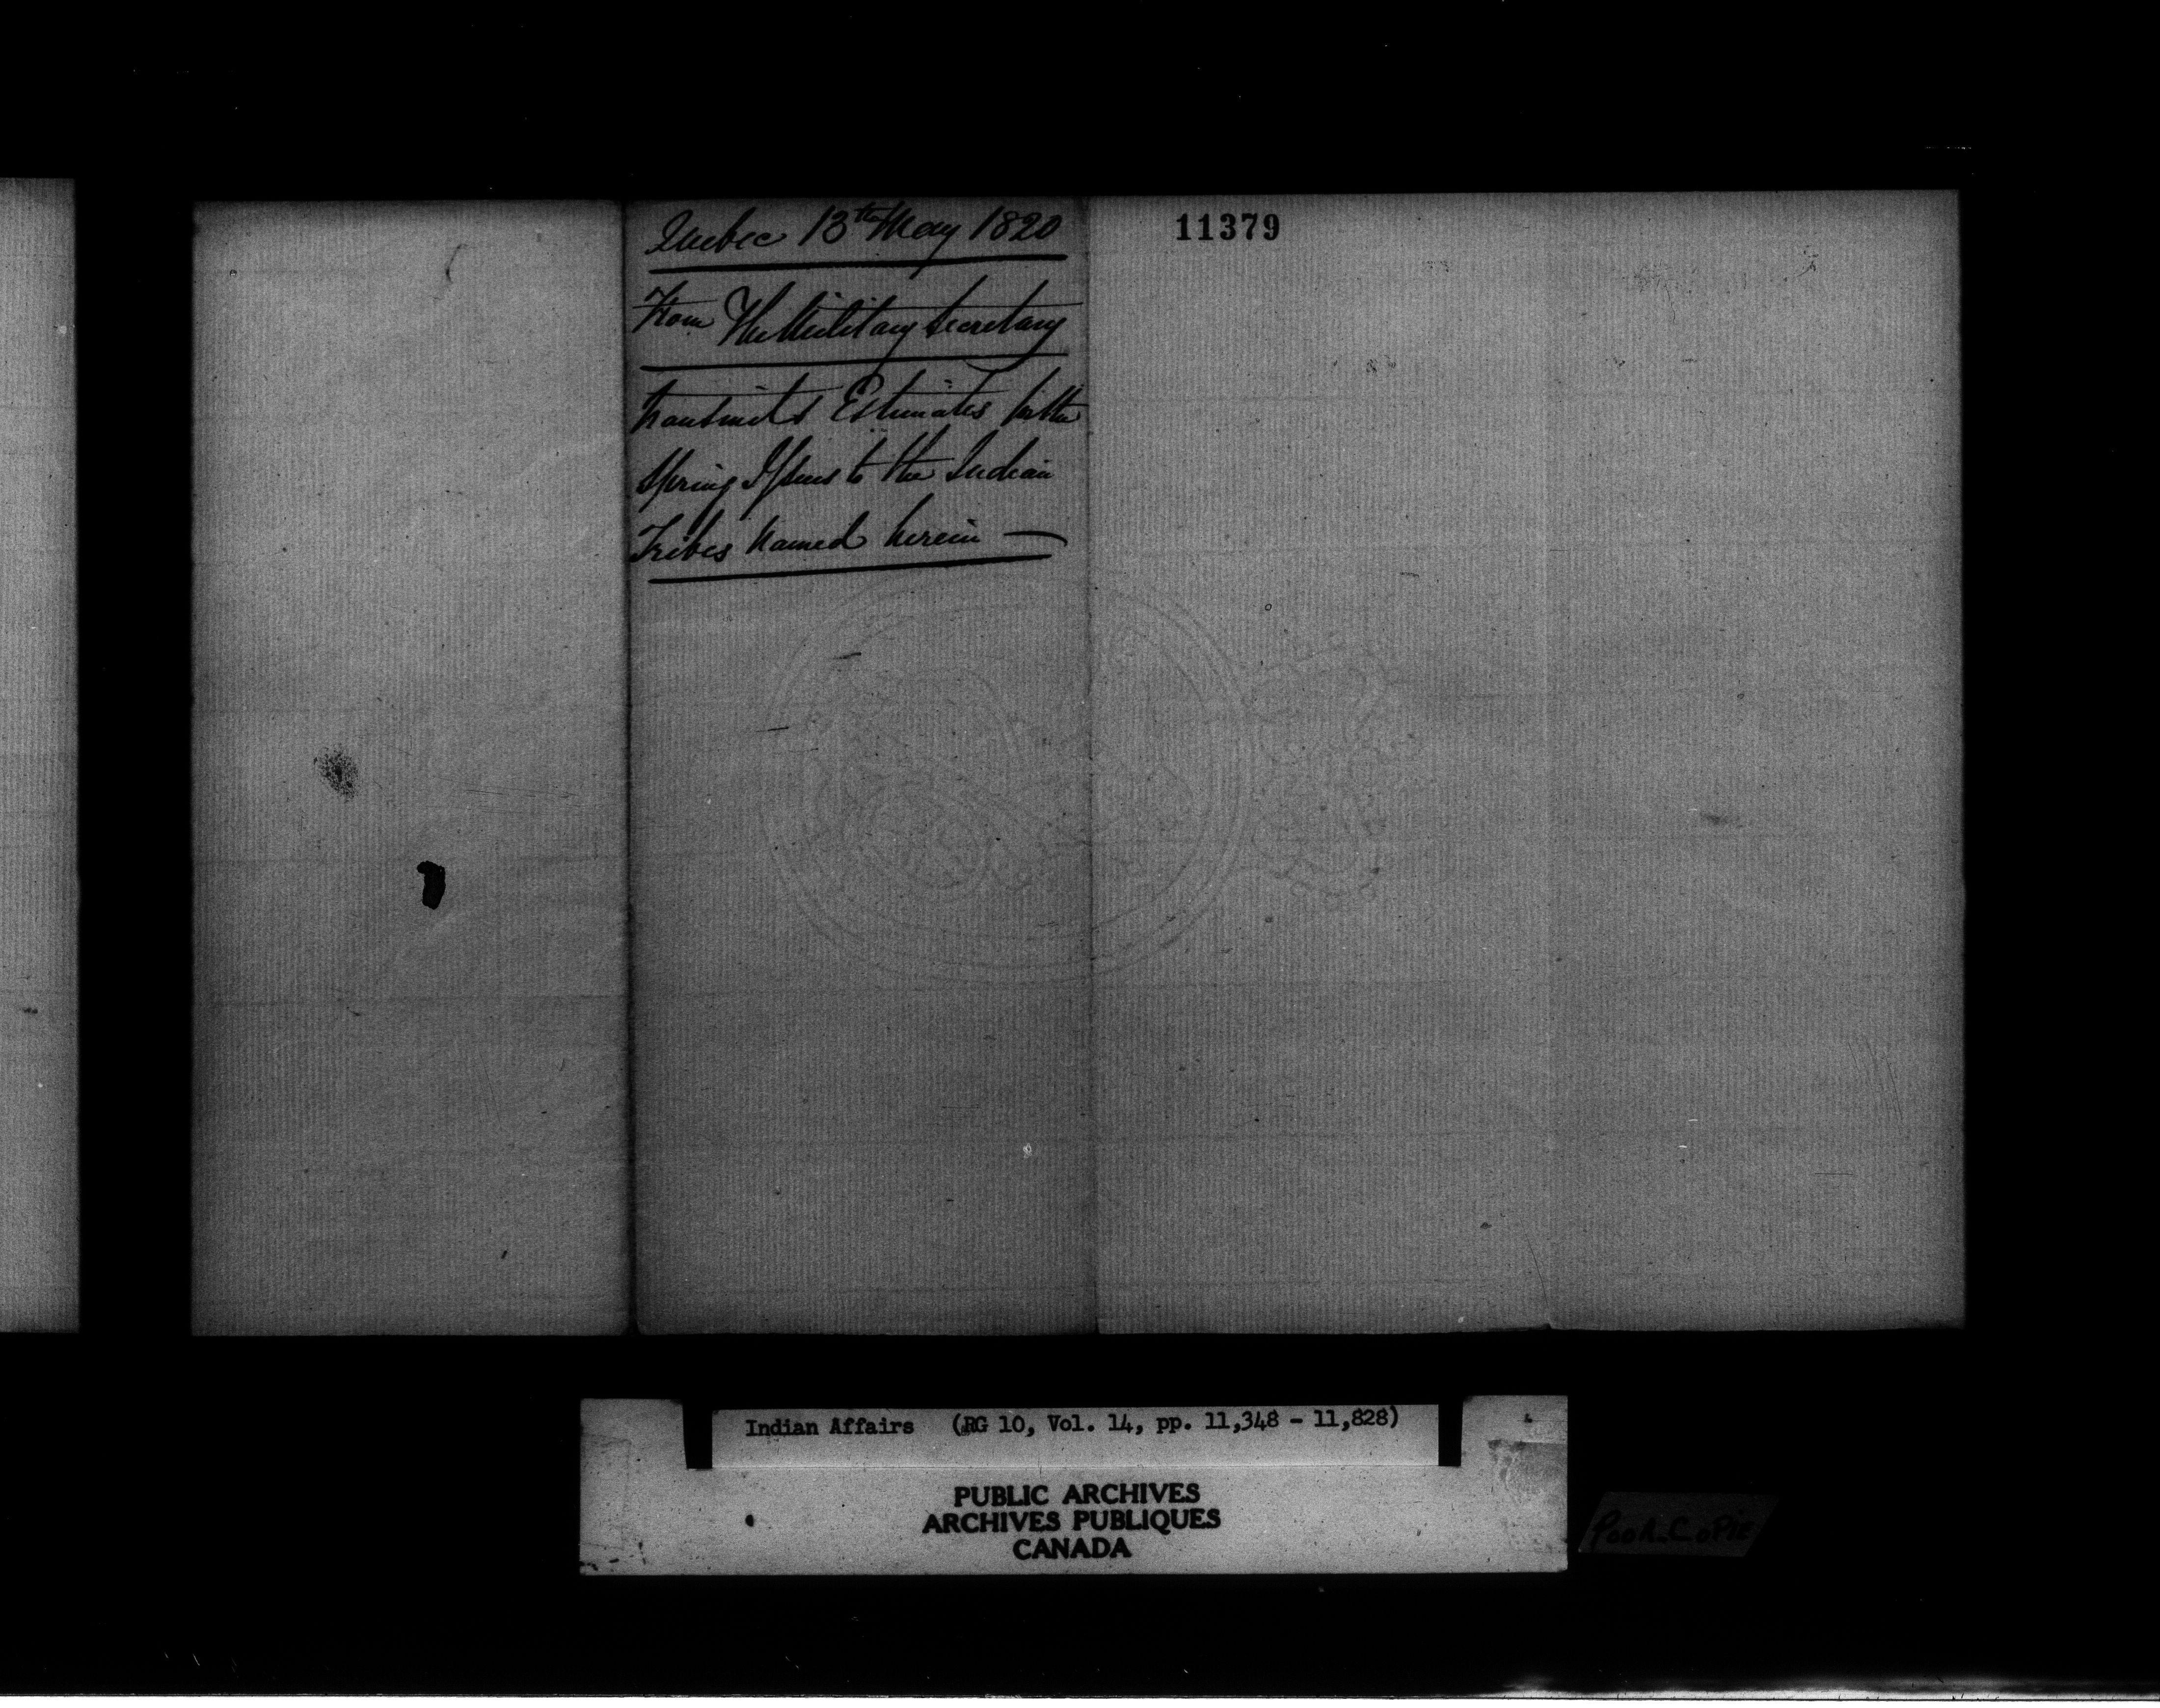 Quebec 13th May 1820
From The Military Secretary
transmits Estimates for the
Spring Issues to the Indian
Tribes named herein —
11379
Indian Affairs (RG 10, Vol. 14, pp. 11,348 - 11,828)
PUBLIC ARCHIVES
ARCHIVES PUBLIQUES
CANADA
POOR COPIE